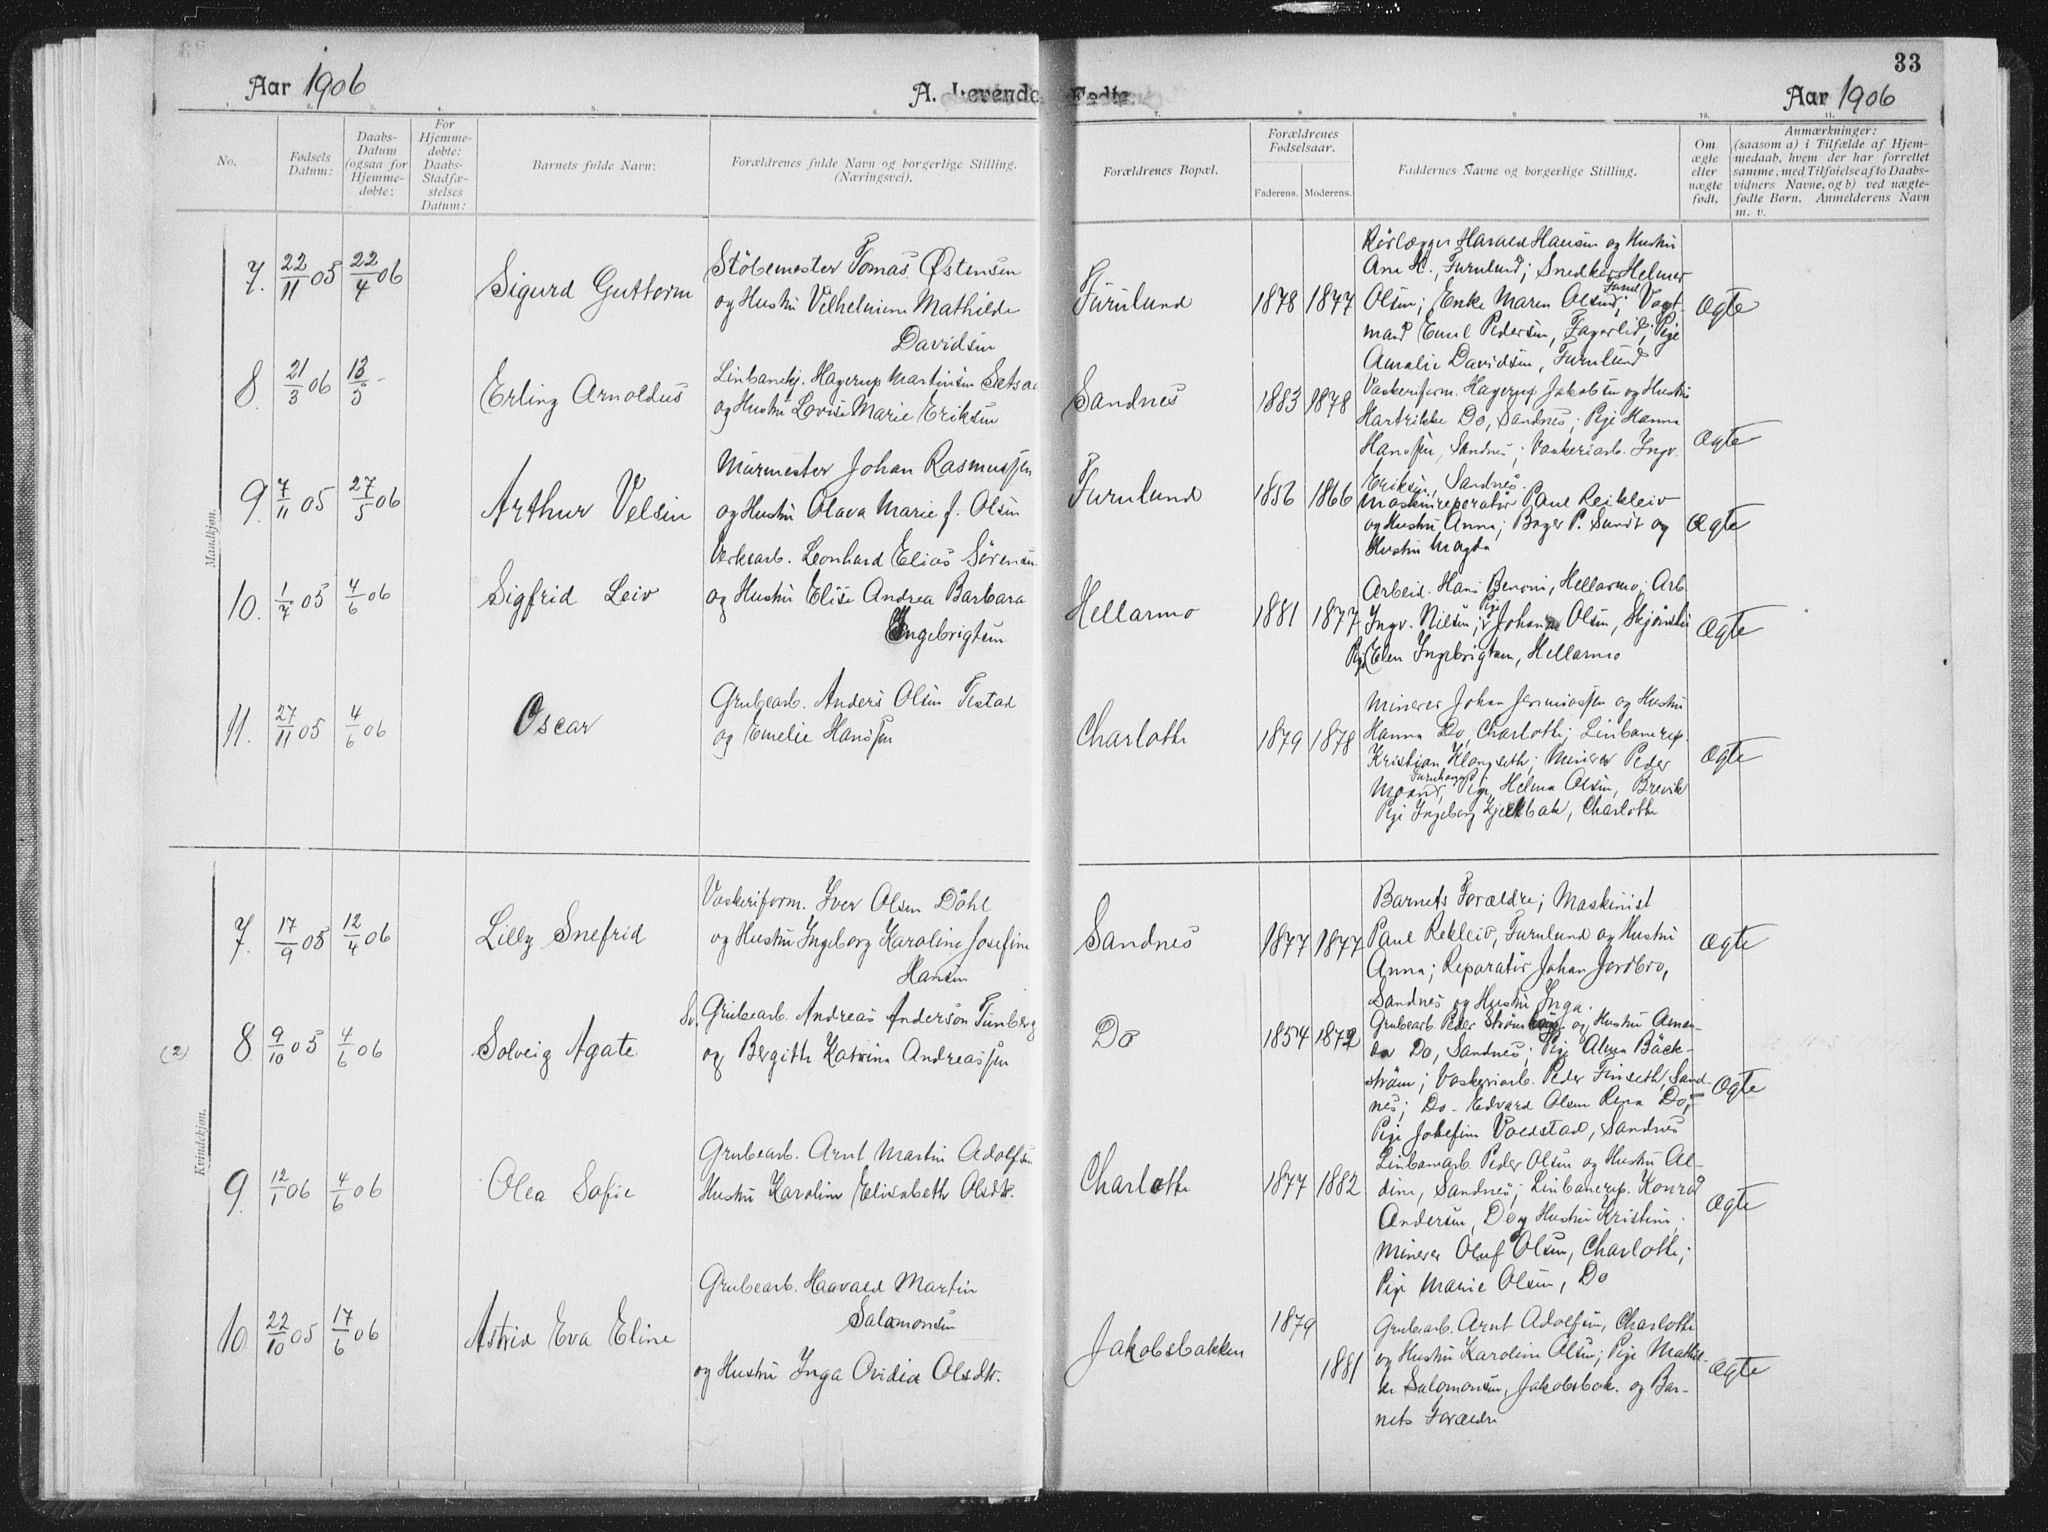 33
Aar 1906
A. Levende Fødte.
Aar 1906
1. 2. 3. 4. 5. 6. 7. 8 9 10. 11.
No.
Fødsels Datum:
Daabs-Datum (ogsaa for Hjemmedøbte:
For Hjemmedøbte: Daabs-Stadfæstelses Datum:
Barnets fulde Navn:
Forældrenes fulde Navn og borgerlige Stilling. (Næringsvei).
Forældrenes Bopæl.
Forældrenes Fødselsaar.
Faderens. Moderens.
Faddernes Navne og borgerlige Stilling.
Om ægte eller nægte født.
Anmærkninger: (saasom a) i Tilfælde af Hjemmedaab, hvem der har forrettet samme, med Tilføielse af to Daabsvidners Navne, og b) ved nægtefødte Børn. Anmelderens Navn m. v.
Mandkjøn.
7. 22/11 05 22/4 06
Sigurd Guttorm
Stöbemester Tomas Østensen
og Hustru Vilhelmine Mathilde
Davidsen
Furulund
1878 1877
Rörlægger Harald Hansen og Hustru
Ane K., Furulund; Snedker Helmer
Olsen; Enke Maren Olsen, Furul; Vagt-
mand Emil Pedersen, Fagerlid; Pige
Amalie Davidsen, Furulund
Ægte
8. 21/3 06 13/5 -
Erling Arnoldus
Linbanekj. Hagerup Martinsen
og Hustru Lovise Marie Eriksen
Sandnes
1883 1878
Vaskeriform. Hagerup Jakobsen og Hustru
Hartrikke Do, Sandnes; Pige Hanna
Hanssen, Sandnes; Vaskeriarb. Ingv.
Eriksen, Sandnes.
Ægte
9. 7/11 05 27/5 06
Arthur Velsin
Murmester Johan Rasmussen
og Hustru Olava Marie f. Olsen
Furulund
1856 1866
Maskinreparatör Paul Reikleiv
og Hustru Anna; Bager P. Sundt og
Hustru Magda
Ægte
10. 1/7 05 4/6 06
Sigfrid Leiv
Verksarb. Leonhard Elias Sörensen
og Hustru Elise Andrea Barbara
Ingebrigtsen
Hellarmo
1881 1877
Arbeid. Hans Benoni, Hellarmo; Arb.
Ingv. Nilsen; Pige Johanne Olsen,
Pige Elen Ingebrigtsen, Hellarmo
Ægte
11. 27/11 05 4/6 06
Oscar
Grubearb. Anders Olsen Testad
og Emelie Hanssen
Charlotte
1879 1878
Minerer Johan Jermiassen og Hustru
Hanna Do, Charlotte; Linbanerep.
Kristian Klongseth; Minerer Peder
Moand, Furuhaugd; Pige Helma Olsen, Brevik
Pige Ingeborg Kjelbak, Charlotte
Ægte
Kvindekjøn.
7. 17/9 05 12/4 06
Lilly Snefrid
Vaskeriform. Iver Olsen Döhl
og Hustru Ingeborg Karoline Josefine
Hansen
Sandnes
1877 1877
Barnets Forældre; Maskinist
Paul Rekleiv, Furulund og Hustru
Anna; Reparatör Johan Jordbro,
Sandnes og Hustru Inga.
Ægte
(2) 8 9/10 05 4/6 06
Solveig Agate
Sv. Grubearb. Andreas Anderson Tunberg
og Bergitte Katrina Andreassen
Do
1854 1872
Grubearb. Peder Strömberg og Hustru Aman-
da Do, Sandnes; Pige Alma Bäck-
ström; Vaskeriarb. Peder Finseth, Sand-
nes; Do - Edvard Olsen Rena Do;
Pige Josefine Voldstad, Sandnes
Ægte
9. 12/1 06 4/6 06
Olea Sofie
Grubearb. Arnt Martin Adolfsen
Hustru Karoline Elisabeth Olsdtr.
Charlotte
1877 1882
Linbanearb. Peder Olsen og Hustru Al-
dine, Sandnes; Linbanerep. Konrad
Andersen, Do og Hustru Kristine;
Minerer Oluf Olsen, Charlotte;
Pige Marie Olsen, Do
Ægte
10 22/10 05 17/6 06
Astrid Eva Eline
Grubearb. Haavald Martin
Salamonsen
og Hustru Inga Ovidia Olsdtr.
Jakobsbakken
1879
1881
Grubearb. Arnt Adolfsen, Charlotte
og Hustru Karoline Olsen; Pige Mathil-
de Salomonsen, Jakobsbak. og Bar-
nets Forældre
Ægte